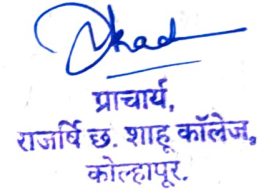 प्राचार्य,
राजर्षि छ. शाहू कॉलेज,
कोल्हापुर.